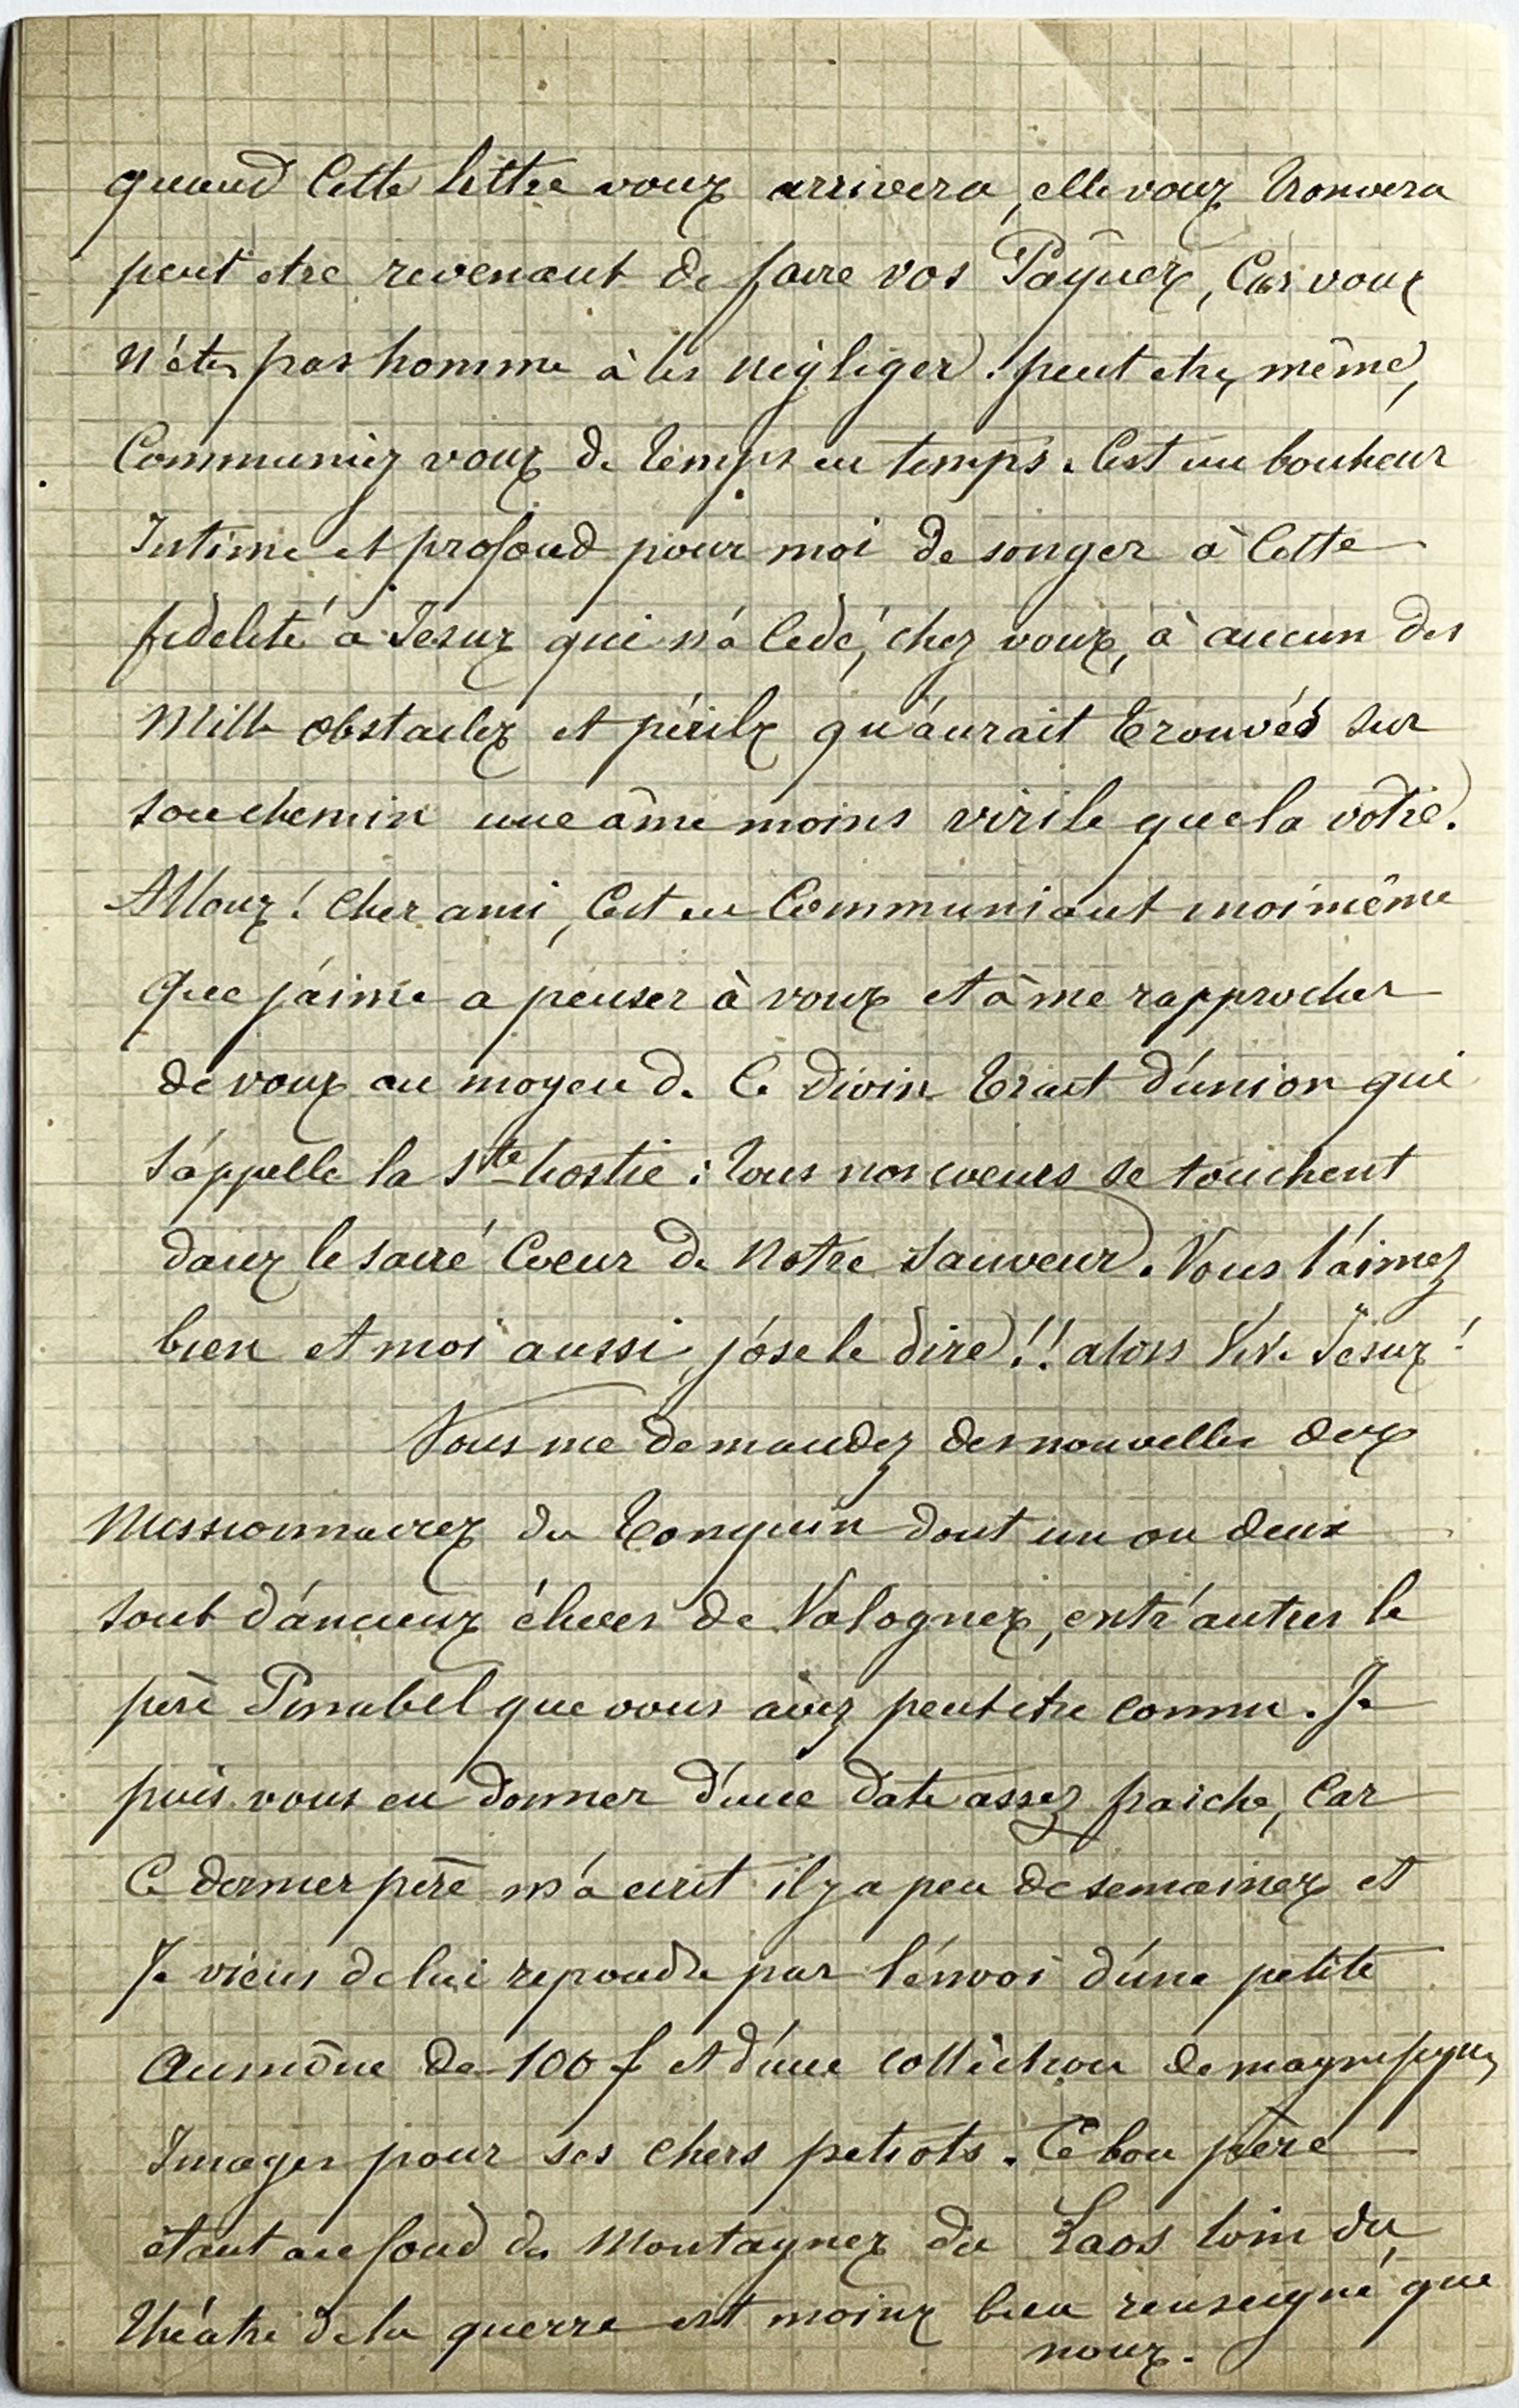 quand cette lettre vous arrivera, elle vous trouvera
peut etre revenant de faire vos Pâques, car vous
n'étes pas homme à les négliger. peut etre, même,
Communiez vous de temps en temps. C'est un bonheur
Intime et profond pour moi de songer à cette
fidelité à Jesus qui n'a cédé, chez vous, à aucun des
Mille obstacles et périls qu'aurait trouvés sur
son chemin une âme moins virile que la vôtre.
Allons! Cher ami, C'est en Communiant moi même
Que j'aime a penser à vous et à me rapprocher
de vous au moyen de ce divin trait d'union qui
s'appelle la Ste hostie : tous nos coeurs se touchent
dans le sacré Coeur de Notre Sauveur. Vous l'aimez
bien et moi aussi, j'ose le dire!! alors Vive Jésus!
Vous me demandez des nouvelles des
Missionnaires du Tonquin dont un ou deux
sont d'anciens éleves de Valognes, entr'autres le
père Pinabel que vous avez peut etre connu. Je
puis vous en donner d'une date assez fraiche, Car
Ce dernier père m'a ecrit il y a peu de semaines et
Je viens de lui repondre par l'envoi d'une petite
Aumône de 100 f et d'une collection de magnifiques
Images pour ses chers petiots. Ce bon père
étant au fond des Montagnes du Laos loin du
théatre de la guerre est moins bien renseigné que
nous.